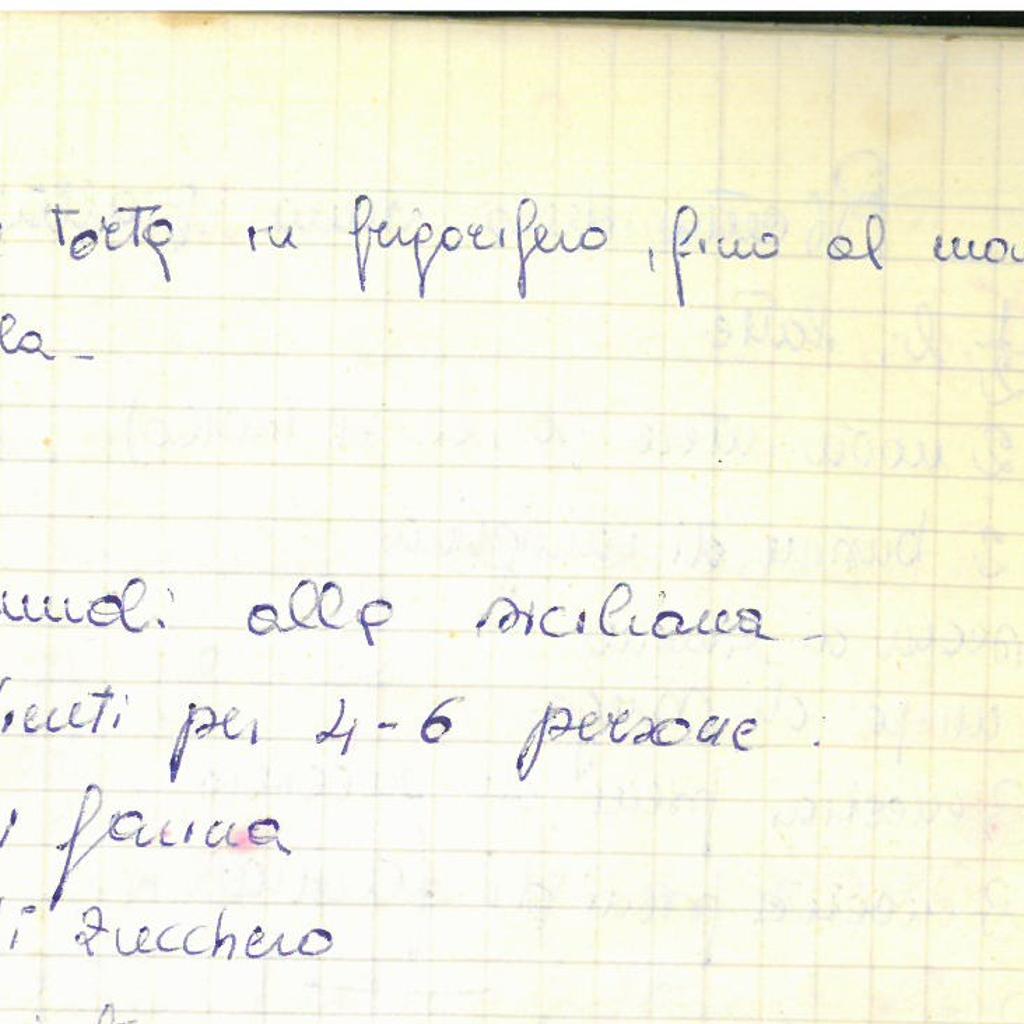 torta in frigorifero, fino al mo
la -
alla siciliana -
ienti per 4-6 persone :
i farina
di zucchero